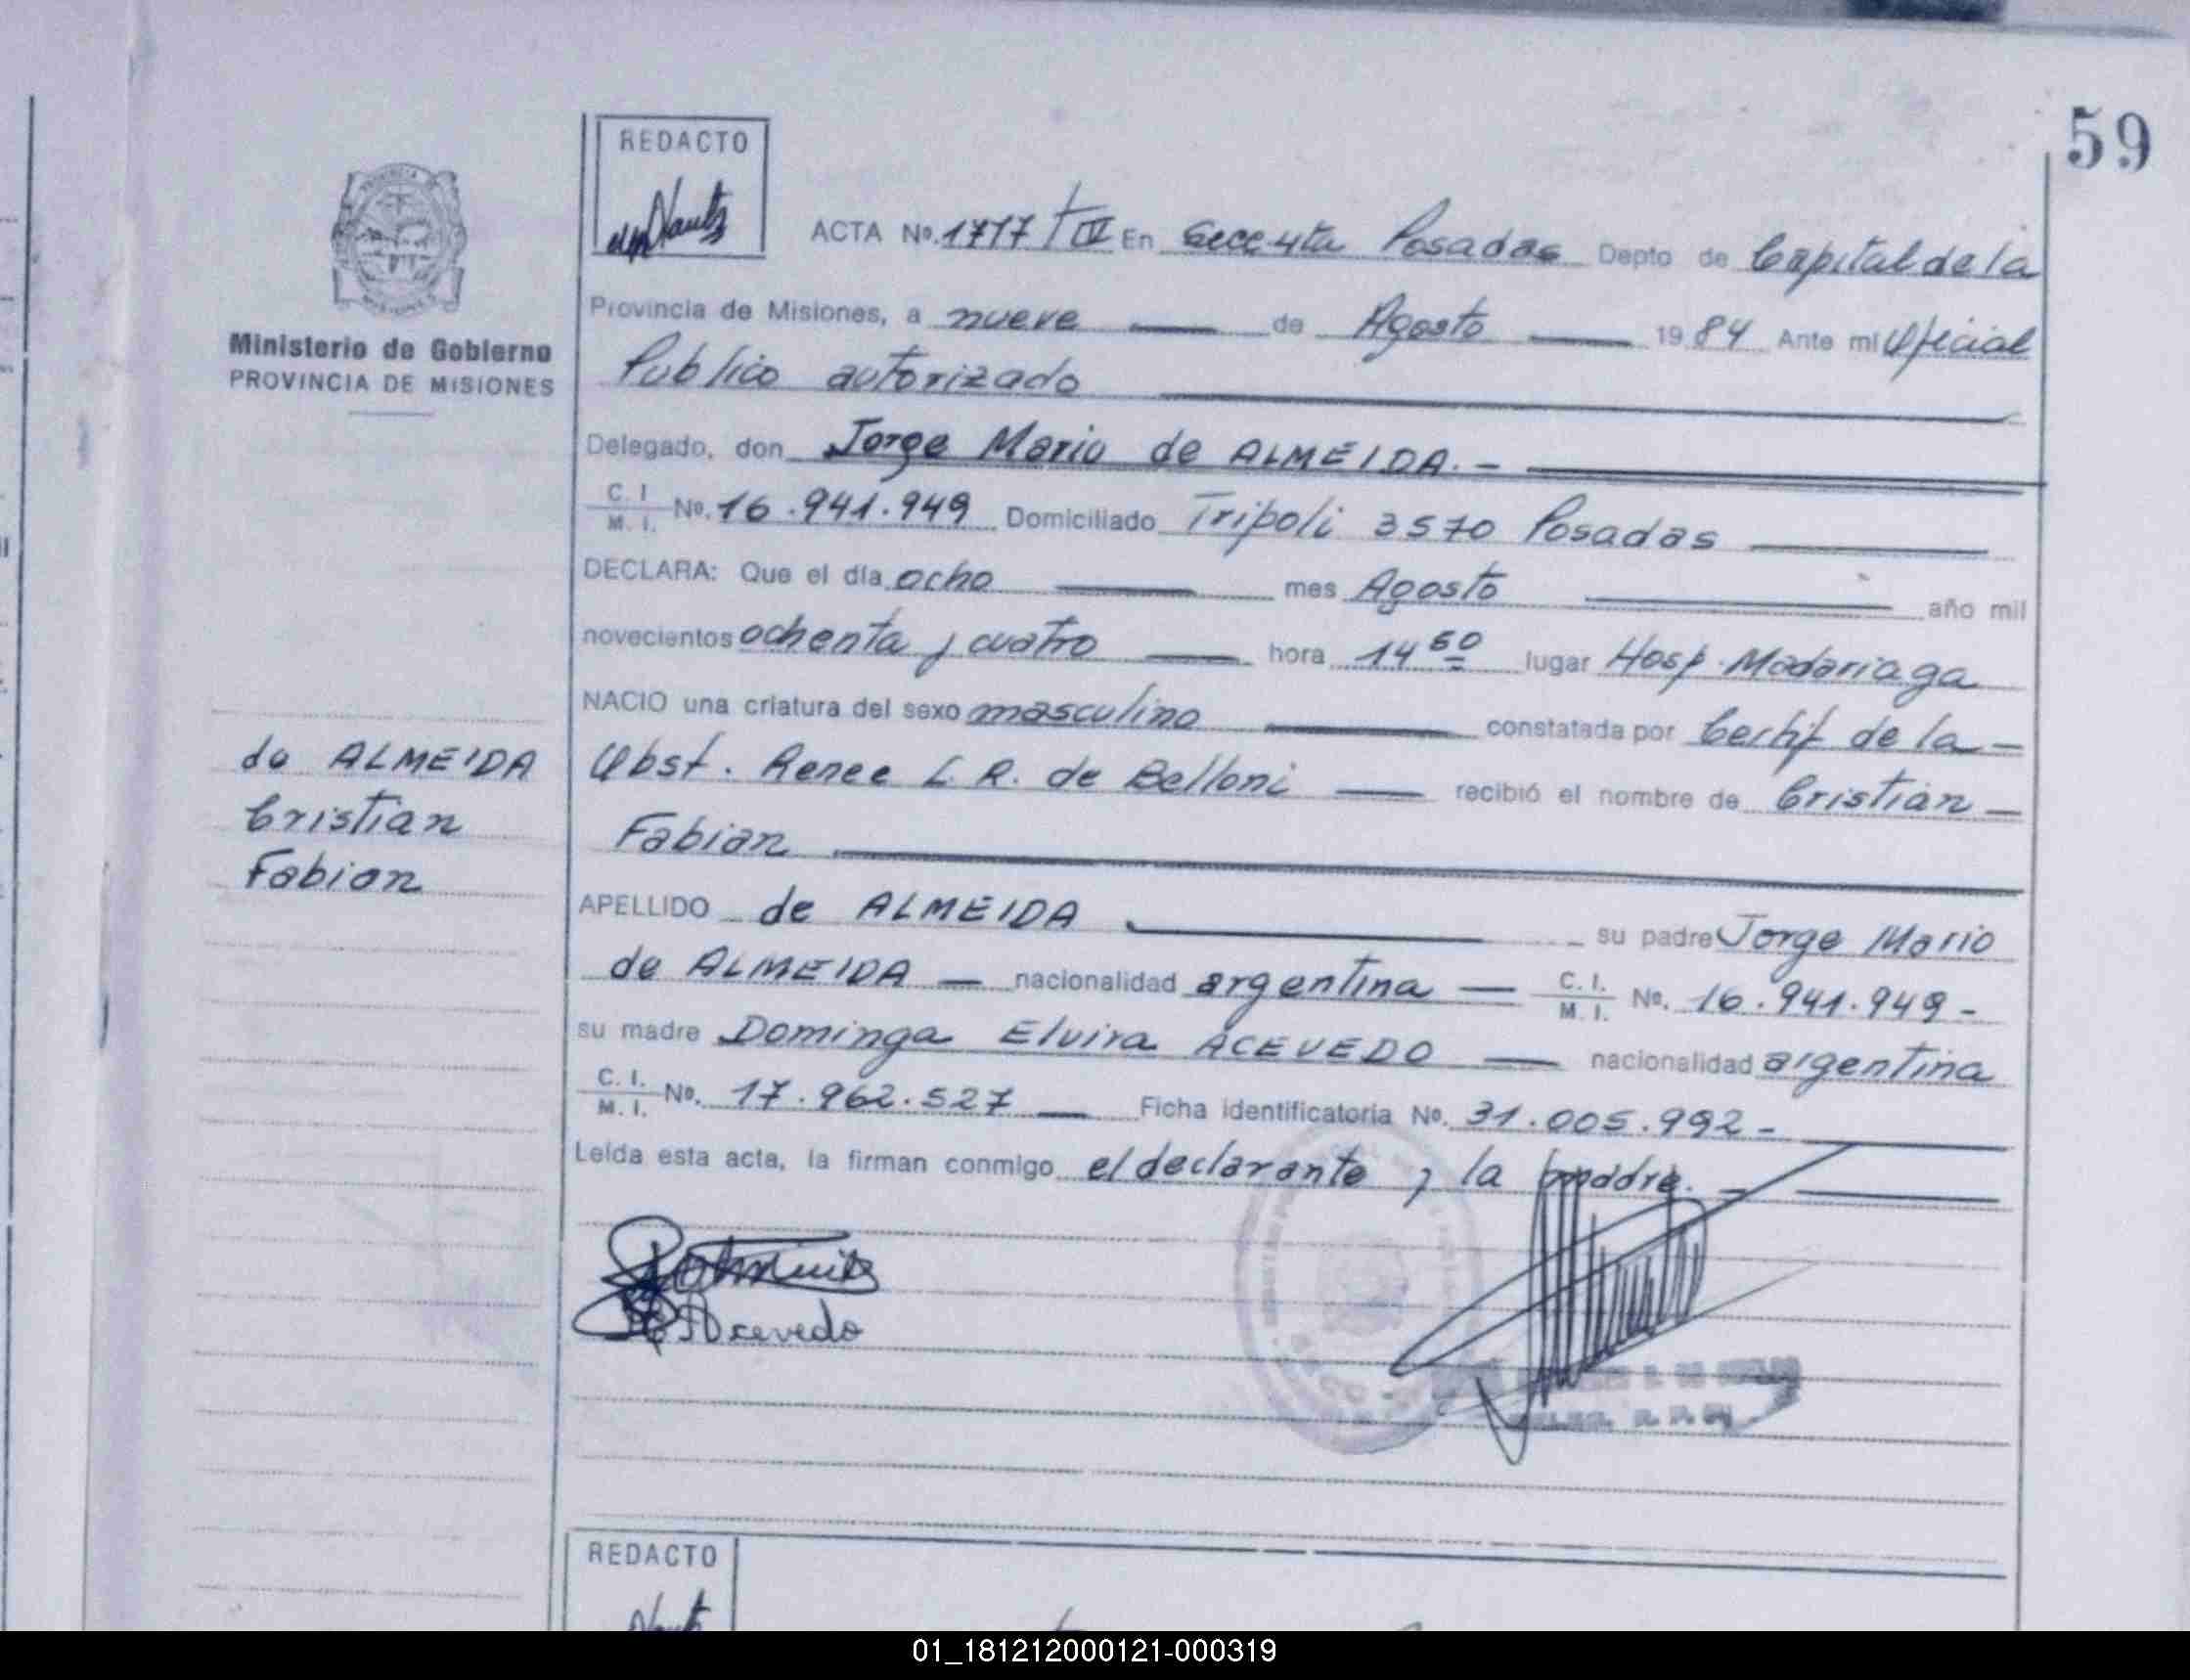 59
REDACTO
ACTA Nº. 1717 TIV En Secc 4ta Posadas Depto de Capital de la
Provincia de Misiones, a nueve de Agosto 1984 Ante mi Oficial
Ministerio de Gobierno
PROVINCIA DE MISIONES
Publico autorizado
Delegado, don Jorge Mario de ALMEIDA. -
C. I. M. I. Nº. 16.941.949 Domiciliado Tripoli 3570 Posadas
DECLARA: Que el día ocho mes Agosto año mil
novecientos ochenta y cuatro hora 14 50 lugar Hosp. Madariaga
NACIO una criatura del sexo masculino constatada por Certif de la -
de ALMEIDA
Cristian
Fabian
Obst. Renee L. R. de Belloni recibió el nombre de Cristian -
Fabian
APELLIDO de ALMEIDA su padre Jorge Mario
de ALMEIDA - nacionalidad argentina - C. I. M. I. Nº. 16.941.949 -
su madre Dominga Elvira ACEVEDO nacionalidad argentina
C. I. M. I. Nº. 17.962.527 Ficha identificatoria Nº. 31.005.992 -
Leída esta acta, la firman conmigo el declarante y la madre. -
Acevedo
REDACTO
01_181212000121-000319